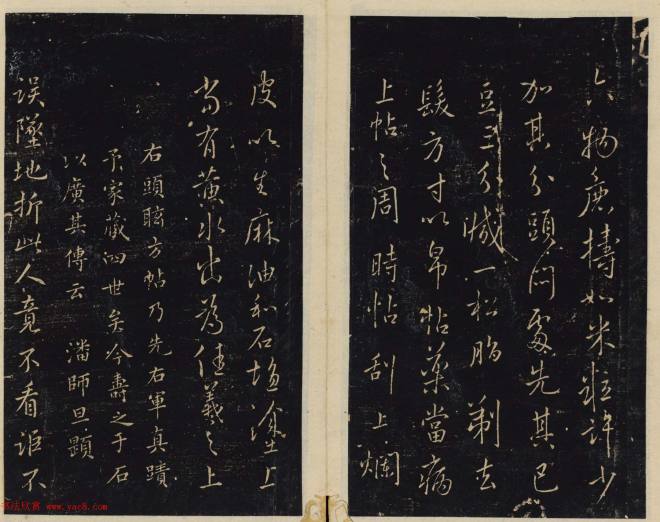 六物麁擣如米粒許少
加其分頭悶處先其巴
豆三分減一松脂剃去
髮方寸以帛帖藥當病
上帖之周時帖刮上爛
皮以生麻油和石塩塗上
當有黃水出為佳羲之上
右頭眩方帖乃先右軍真蹟
予家藏四世矣今壽之于石
以廣其傳云 潘師旦題
誤墜地折此人竟不看詎不
书法欣赏 www.yac8.com